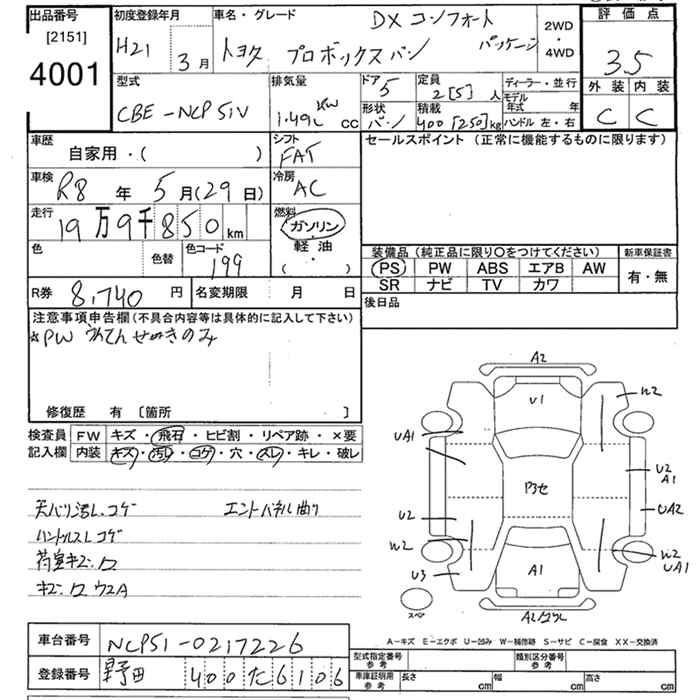 出品番号 初度登録年月 車名・グレード DX コンフォート 2WD・4WD 評価点
[2151] H21 3月 トヨタ プロボックスバン パッケージ 3.5
4001
型式 排気量 ドア 5 定員 2[5]人 ディーラー・並行 外装 内装
CBE-NCP51V 1.49L cc 形状 バン 積載 400[250]kg モデル年式 年 ハンドル 左・右 C C
車歴 シフト セールスポイント(正常に機能するものに限ります)
自家用・( ) FAT
車検 R8年5月(29日) 冷房 AC
走行 19万9千850km 燃料 ガソリン・軽油
( )
色 色替 色コード 199
装備品(純正品に限り〇をつけてください) 新車保証書
PS PW ABS エアB AW 有・無
SR ナビ TV カワ
R券 8,740円 名変期限 月 日 後日品
注意事項申告欄(不具合内容等は具体的に記入して下さい)
☆PW うんてんせきのみ
修復歴 有 [箇所 ]
検査員 FW キズ・飛石・ヒビ割・リペア跡・×要
記入欄 内装 キズ・汚レ・コゲ・穴・スレ・キレ・破レ
天バリ汚レ.コゲ エンドパネル曲り
ハンドルスレ.コゲ
荷室キズ.ワ
キズ.ワ ウスA
A2
U1
W2
UA1
U2
A1
P3セ
UA2
U2
W2
W2
UA1
U3
A1
スペア
A-キズ E-エクボ U-凹み W-補修跡 S-サビ C-腐食 XX-交換済
車台番号 NCP51-0217226
型式指定番号 参考 類別区分番号 参考
登録番号 400 6106
車庫証明用 参考 長さ cm 幅 cm 高さ cm